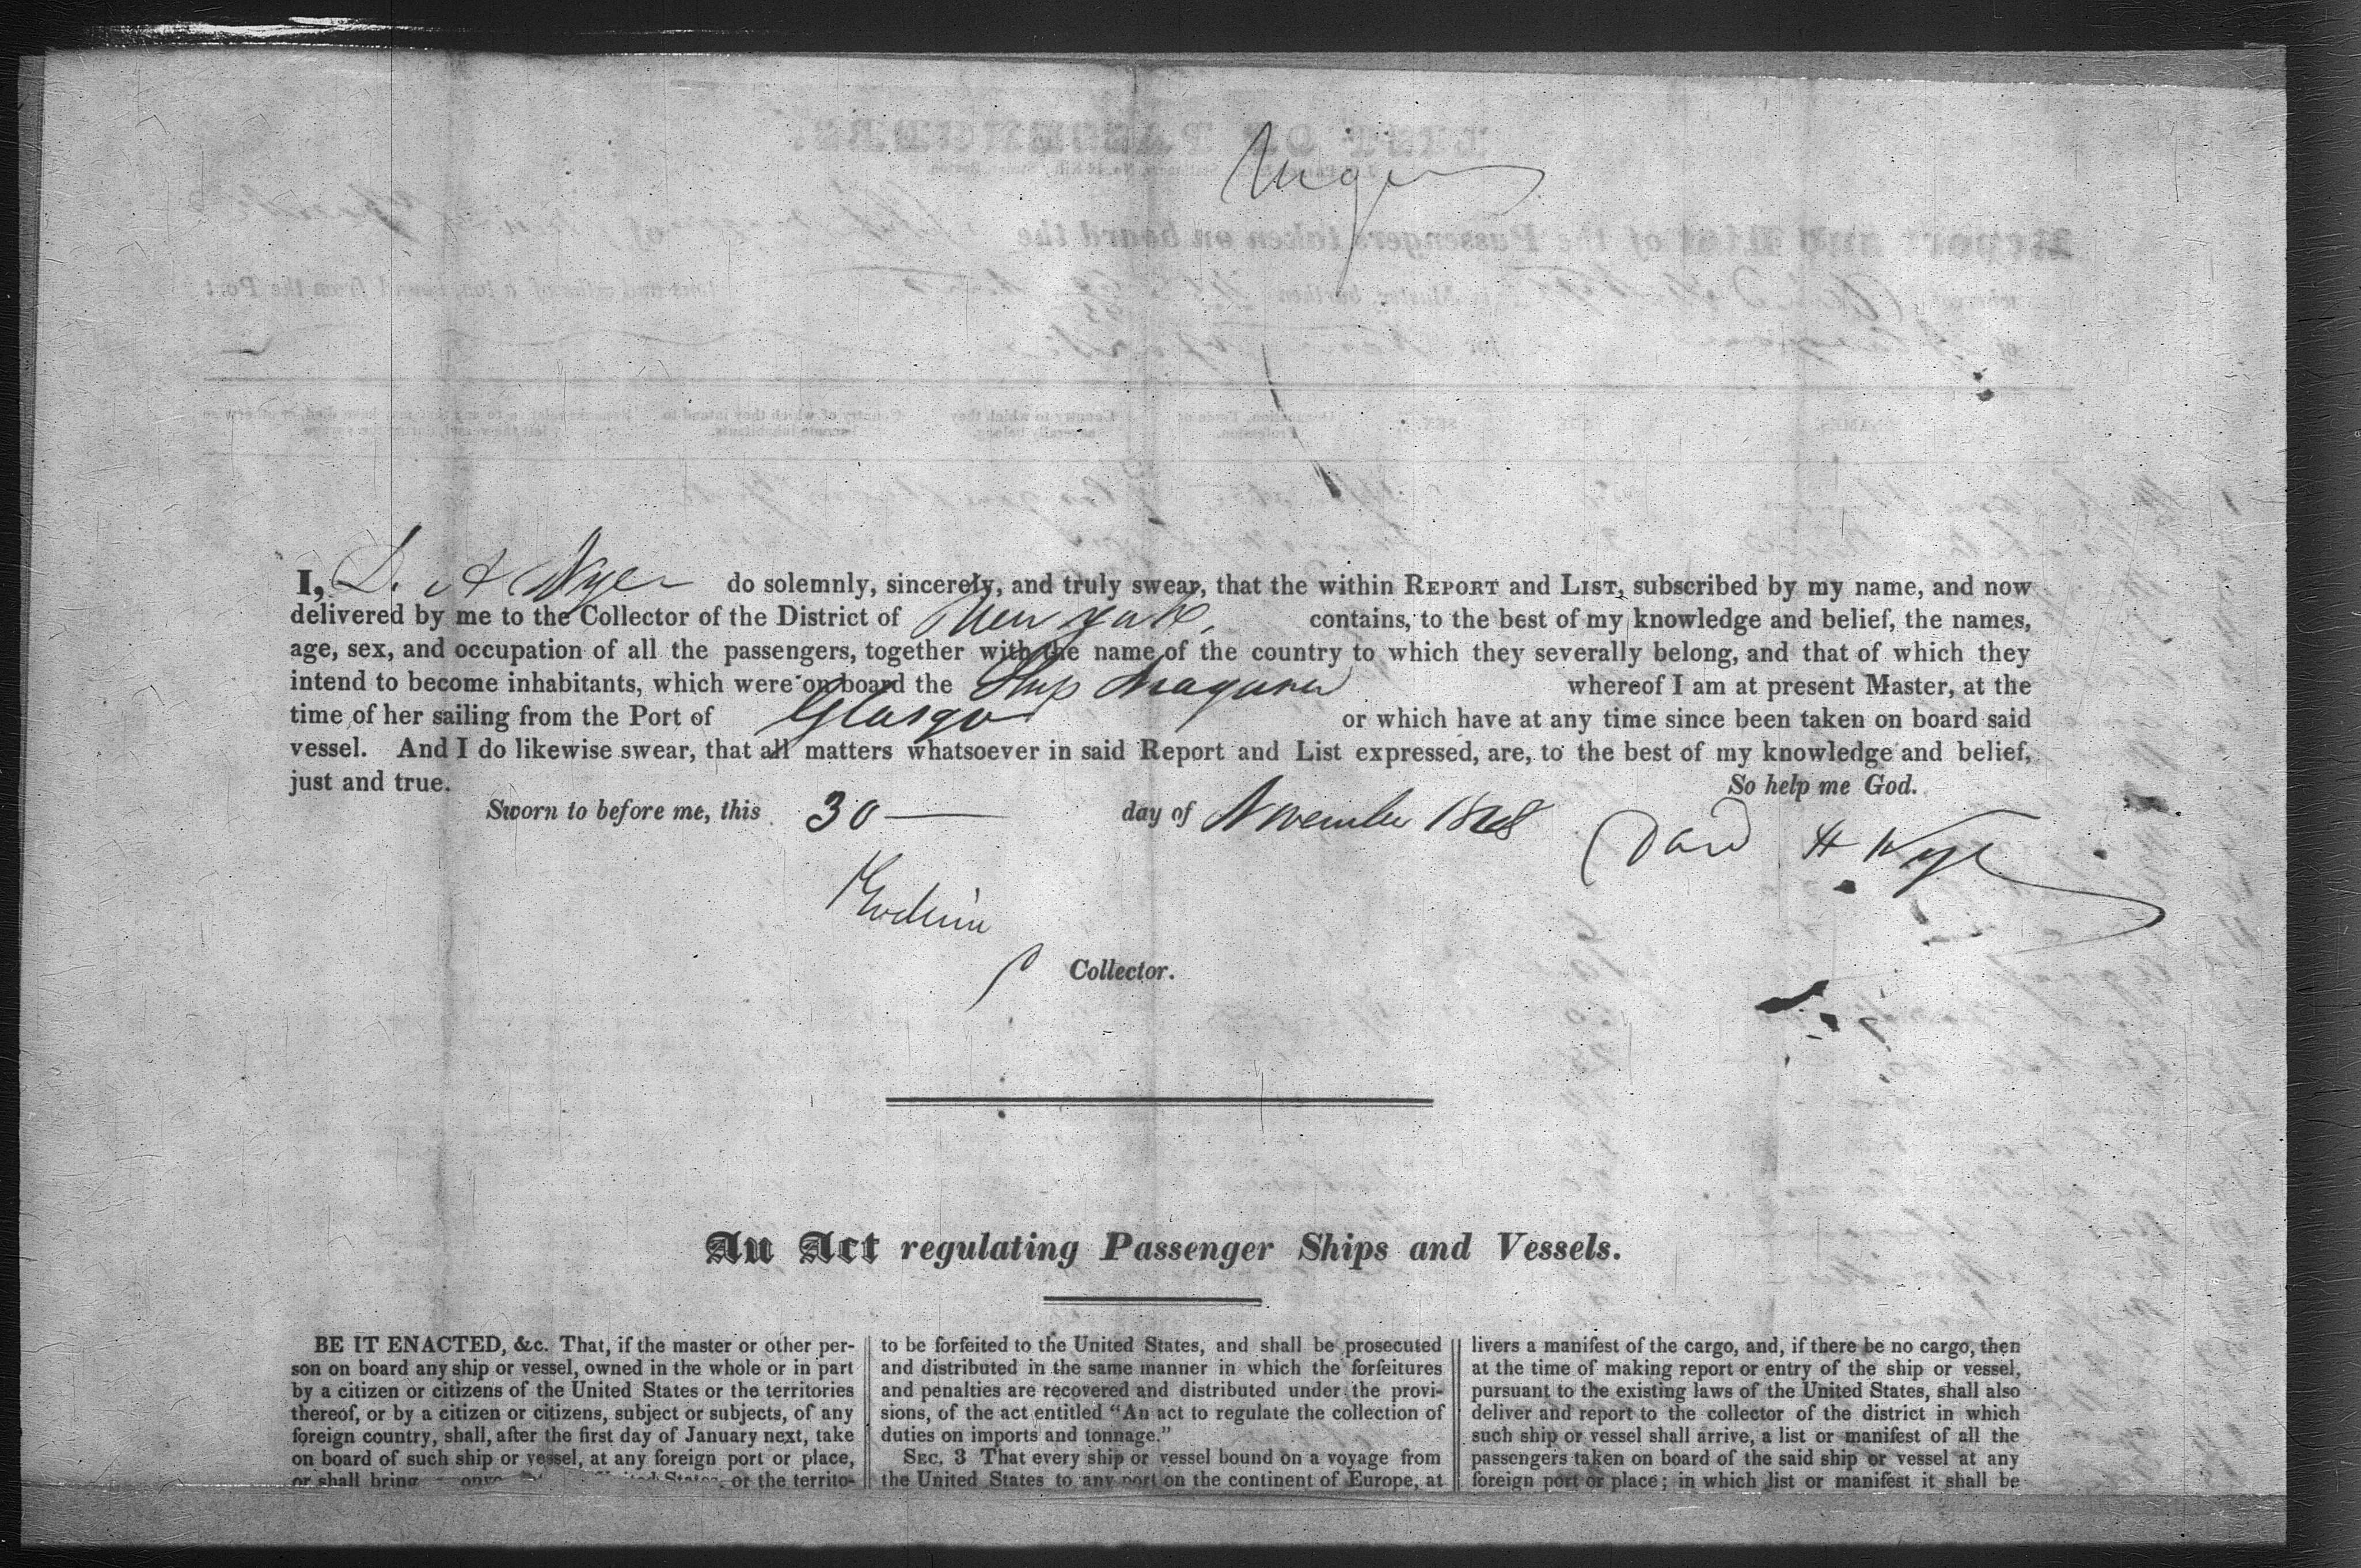 I, D. H Nye do solemnly, sincerely, and truly swear, that the within REPORT and LIST, subscribed by my name, and now
delivered by me to the Collector of the District of New York, contains, to the best of my knowledge and belief, the names,
age, sex, and occupation of all the passengers, together with the name of the country to which they severally belong, and that of which they
intend to become inhabitants, which were on board the Ship whereof I am at present Master, at the
time of her sailing from the Port of Glasgo or which have at any time since been taken on board said
vessel. And I do likewise swear, that all matters whatsoever in said Report and List expressed, are, to the best of my knowledge and belief,
just and true. So help me God.
Sworn to before me, this 30 day of November 1828
David H Nye
Collector.
An Act regulating Passenger Ships and Vessels.
BE IT ENACTED, &c. That, if the master or other per-
son on board any ship or vessel, owned in the whole or in part
by a citizen or citizens of the United States or the territories
thereof, or by a citizen or citizens, subject or subjects, of any
foreign country, shall, after the first day of January next, take
on board of such ship or vessel, at any foreign port or place,
or shall bring United States, or the territo-
to be forfeited to the United States, and shall be prosecuted
and distributed in the same manner in which the forfeitures
and penalties are recovered and distributed under the provi-
sions, of the act entitled "An act to regulate the collection of
duties on imports and tonnage."
SEC. 3 That every ship or vessel bound on a voyage from
the United States to any port on the continent of Europe, at
livers a manifest of the cargo, and, if there be no cargo, then
at the time of making report or entry of the ship or vessel,
pursuant to the existing laws of the United States, shall also
deliver and report to the collector of the district in which
such ship or vessel shall arrive, a list or manifest of all the
passengers taken on board of the said ship or vessel at any
foreign port or place; in which list or manifest it shall be